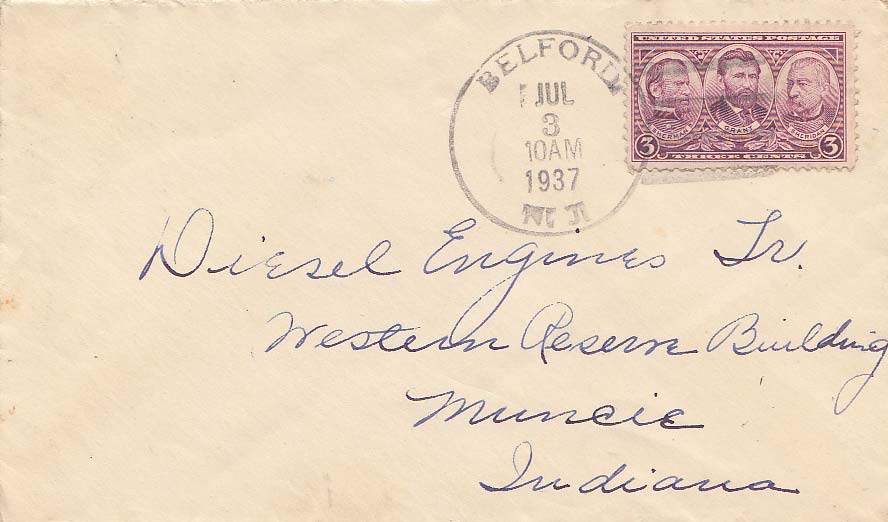 BELFORD
JUL
3
10AM
1937
N. J.
UNITED STATES POSTAGE
SHERMAN GRANT SHERIDAN
3 THREE CENTS 3
Diesel Engines Tr.
Western Reserve Building
Muncie
Indiana